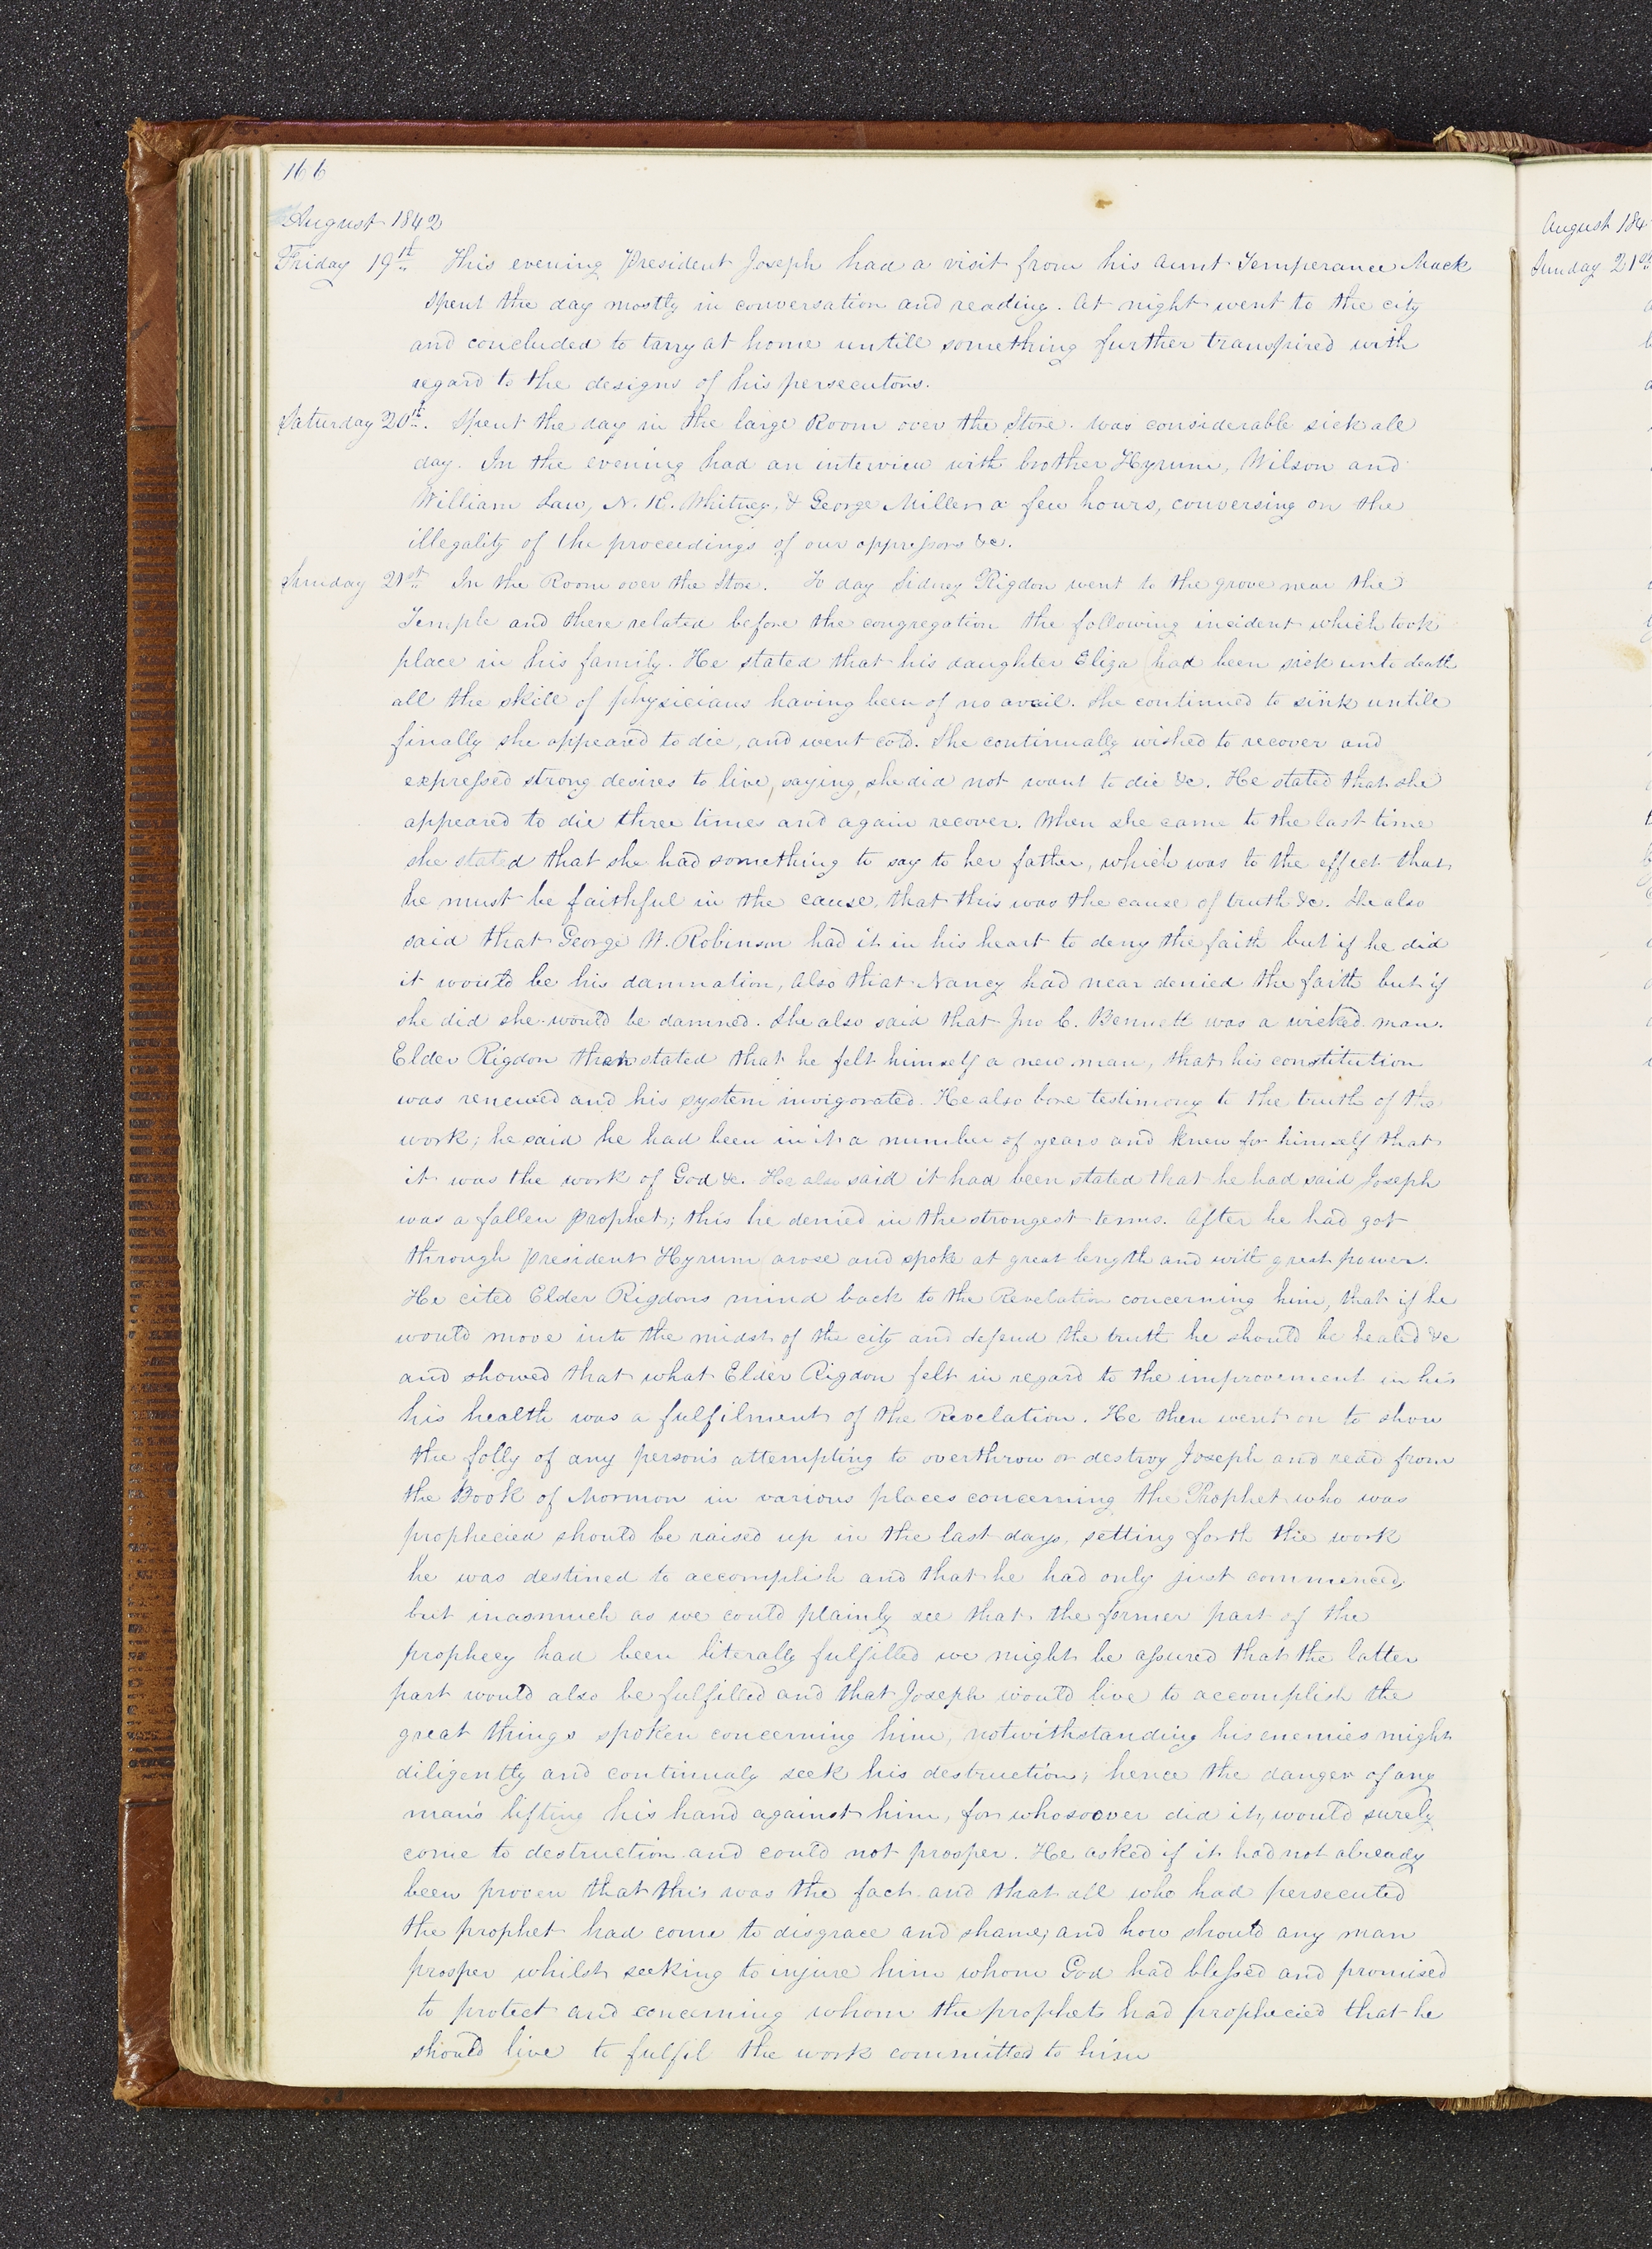 166
August 1842
Friday 19th This evening President Joseph had a visit from his Aunt Temperance Mack
spent the day mostly in conversation and reading. At night went to the city
and concluded to tarry at home untill something further transpired with
regard to the designs of his persecutors.
Saturday 20th. Spent the day in the large Room over the Store. was considerable sick all
day. In the evening had an interview with brother Hyrum, Wilson and
William Law, N. K. Whitney, & George Miller a few hours, conversing on the
illegality of the proceedings of our oppressors &c.
Sunday 21st In the Room over the Store. To day Sidney Rigdon went to the grove near the
Temple and there related before the congregation the following incident which took
place in his family. He stated that his daughter Eliza had been sick unto death
all the skill of physicians having been of no avail. She continued to sink untill
finally she appeared to die, and went cold. She continually wished to recover and
expressed strong desires to live, saying, she did not want to die &c. He stated that she
appeared to die three times and again recover. When she came to the last time
she stated that she had something to say to her father, which was to the effect that
he must be faithful in the cause, that this was the cause of truth &c. She also
said that George W. Robinson had it in his heart to deny the faith but if he did
it would be his damnation, also that Nancy had near denied the faith but if
she did she would be damned. She also said that Jno C. Bennett was a wicked man.
Elder Rigdon then stated that he felt himself a new man, that his constitution
was renewed and his system invigorated. He also bore testimony to the truth of the
work; he said he had been in it a number of years and knew for himself that
it was the work of God &c. He also said it had been stated that he had said Joseph
was a fallen prophet; this he denied in the strongest terms. After he had got
through President Hyrum arose and spoke at great length and with great power.
He cited Elder Rigdons mind back to the Revelation concerning him, that if he
would move into the midst of the city and defend the truth he should be healed &c
and showed that what Elder Rigdon felt in regard to the improvement in his
his health was a fulfilment of the Revelation. He then went on to show
the folly of any person's attempting to overthrow or destroy Joseph and read from
the Book of Mormon in various places concerning the Prophet who was
prophecied should be raised up in the last days, setting forth the work
he was destined to accomplish and that he had only just commenced,
but inasmuch as we could plainly see that the former part of the
prophecy had been literally fulfilled we might be assured that the latter
part would also be fulfilled and that Joseph would live to accomplish the
great things spoken concerning him, notwithstanding his enemies might
diligently and continualy seek his destruction; hence the danger of any
man's lifting his hand against him, for whosoever did it, would surely
come to destruction and could not prosper. He asked if it had not already
been proven that this was the fact and that all who had persecuted
the prophet had come to disgrace and shame; and how should any man
prosper whilst seeking to injure him whom God had blessed and promised
to protect and concerning whom the prophets had prophecied that he
should live to fulfil the work committed to him
August 184
Sunday 21st